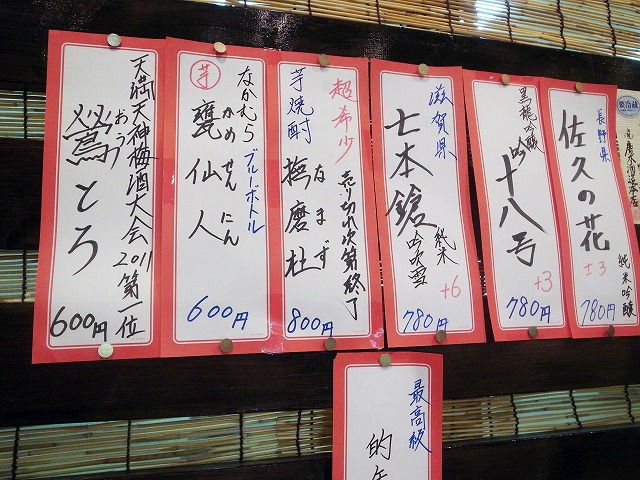 長野県
佐久の花
純米吟醸
±3
780円
黒龍吟醸
吟十八号
+3
780円
滋賀県
七本鎗
純米
吟吹雪
+6
780円
超希少
売り切れ次第終了
芋焼酎
撫磨杜
なまず
800円
芋
なかむら
ブルーボトル
甕仙人
かめせんにん
600円
天満天神梅酒大会2011第一位
鶯とろ
おう
600円
最高級
的
要冷蔵